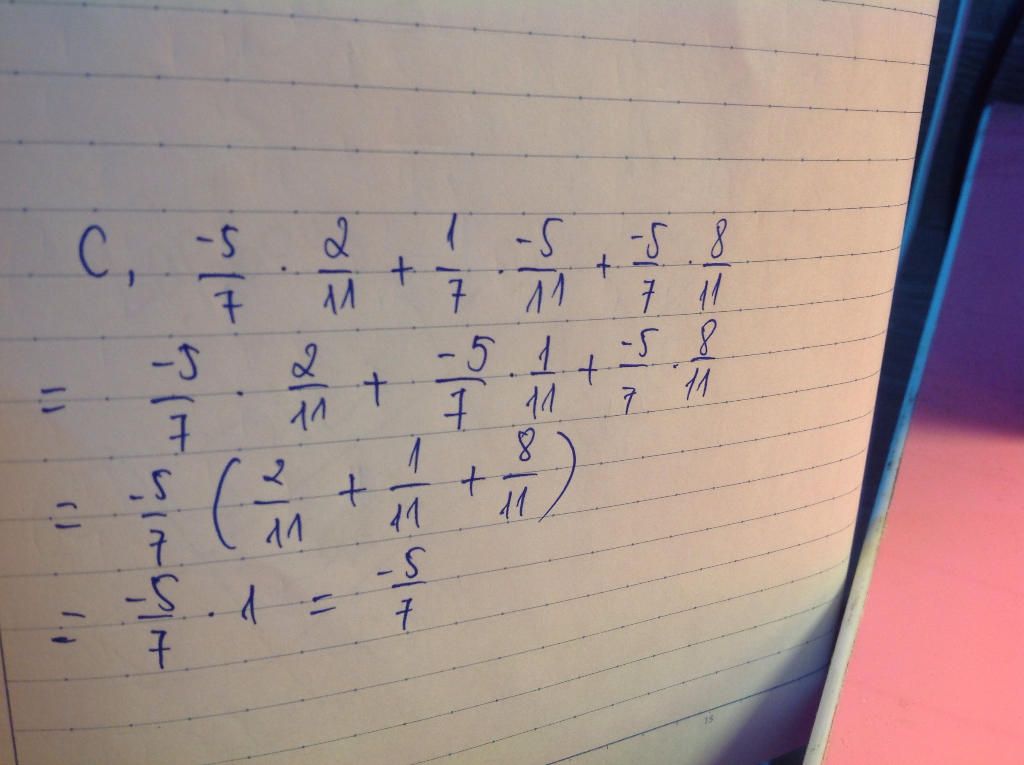 C, -5/7 · 2/11 + 1/7 · -5/11 + -5/7 · 8/11
= -5/7 · 2/11 + -5/7 · 1/11 + -5/7 · 8/11
= -5/7 (2/11 + 1/11 + 8/11)
= -5/7 · 1 = -5/7
15